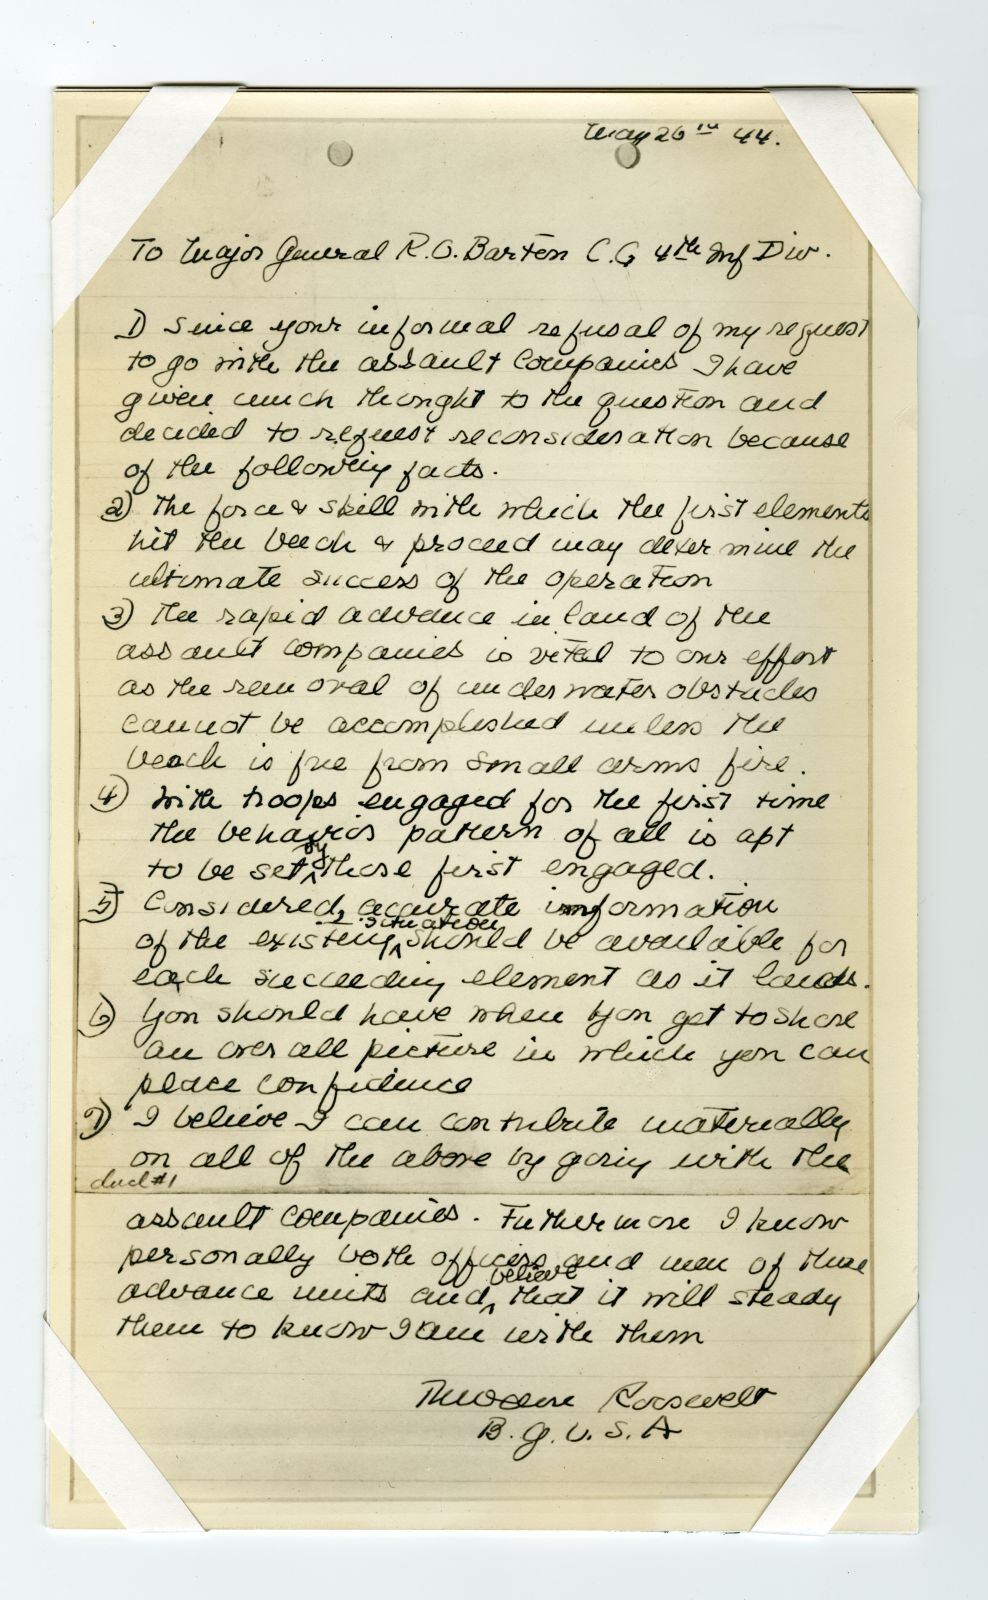 May 26th 44.
To Major General R.O. Barton C.G 4th Inf Div.
1) Since your informal refusal of my request
to go with the assault companies I have
given much thought to the question and
decided to request reconsideration because
of the following facts.
2) The force & skill with which the first elements
hit the beach & proceed may determine the
ultimate success of the operation
3) The rapid advance inland of the
assault companies is vital to our effort
as the removal of underwater obstacles
cannot be accomplished unless the
beach is free from small arms fire.
4) With troops engaged for the first time
the behavior pattern of all is apt
to be set by those first engaged.
5) Considered, accurate information
of the existing situation should be available for
each succeeding element as it lands.
6) You should have when you get to shore
an over all picture in which you can
place confidence
7) I believe I can contribute materially
on all of the above by going with the
assault companies. Futhermore I know
personally both officers and men of these
advance units and believe that it will steady
them to know I am with them
Theodore Roosevelt
B.G.U.S.A